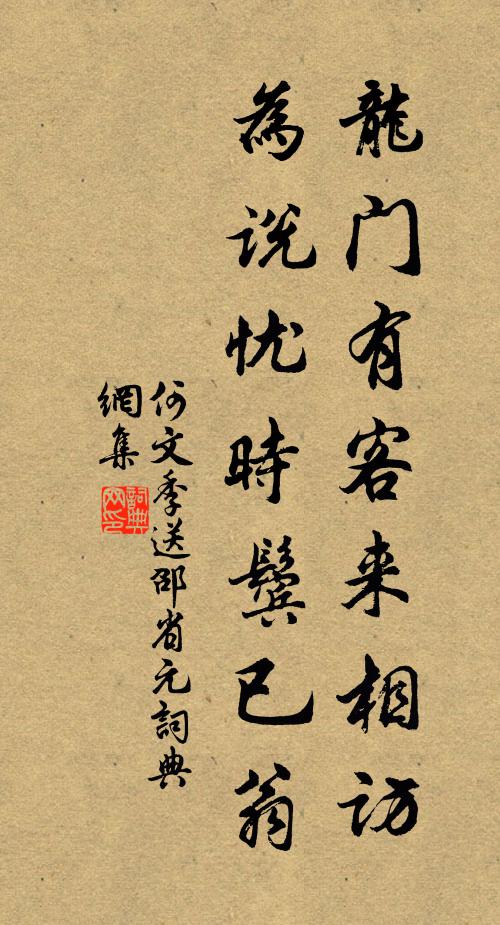 龍门有客来相访
為说忧時鬓已翁
何文季送邵省元詞典
網集
詞典
网印